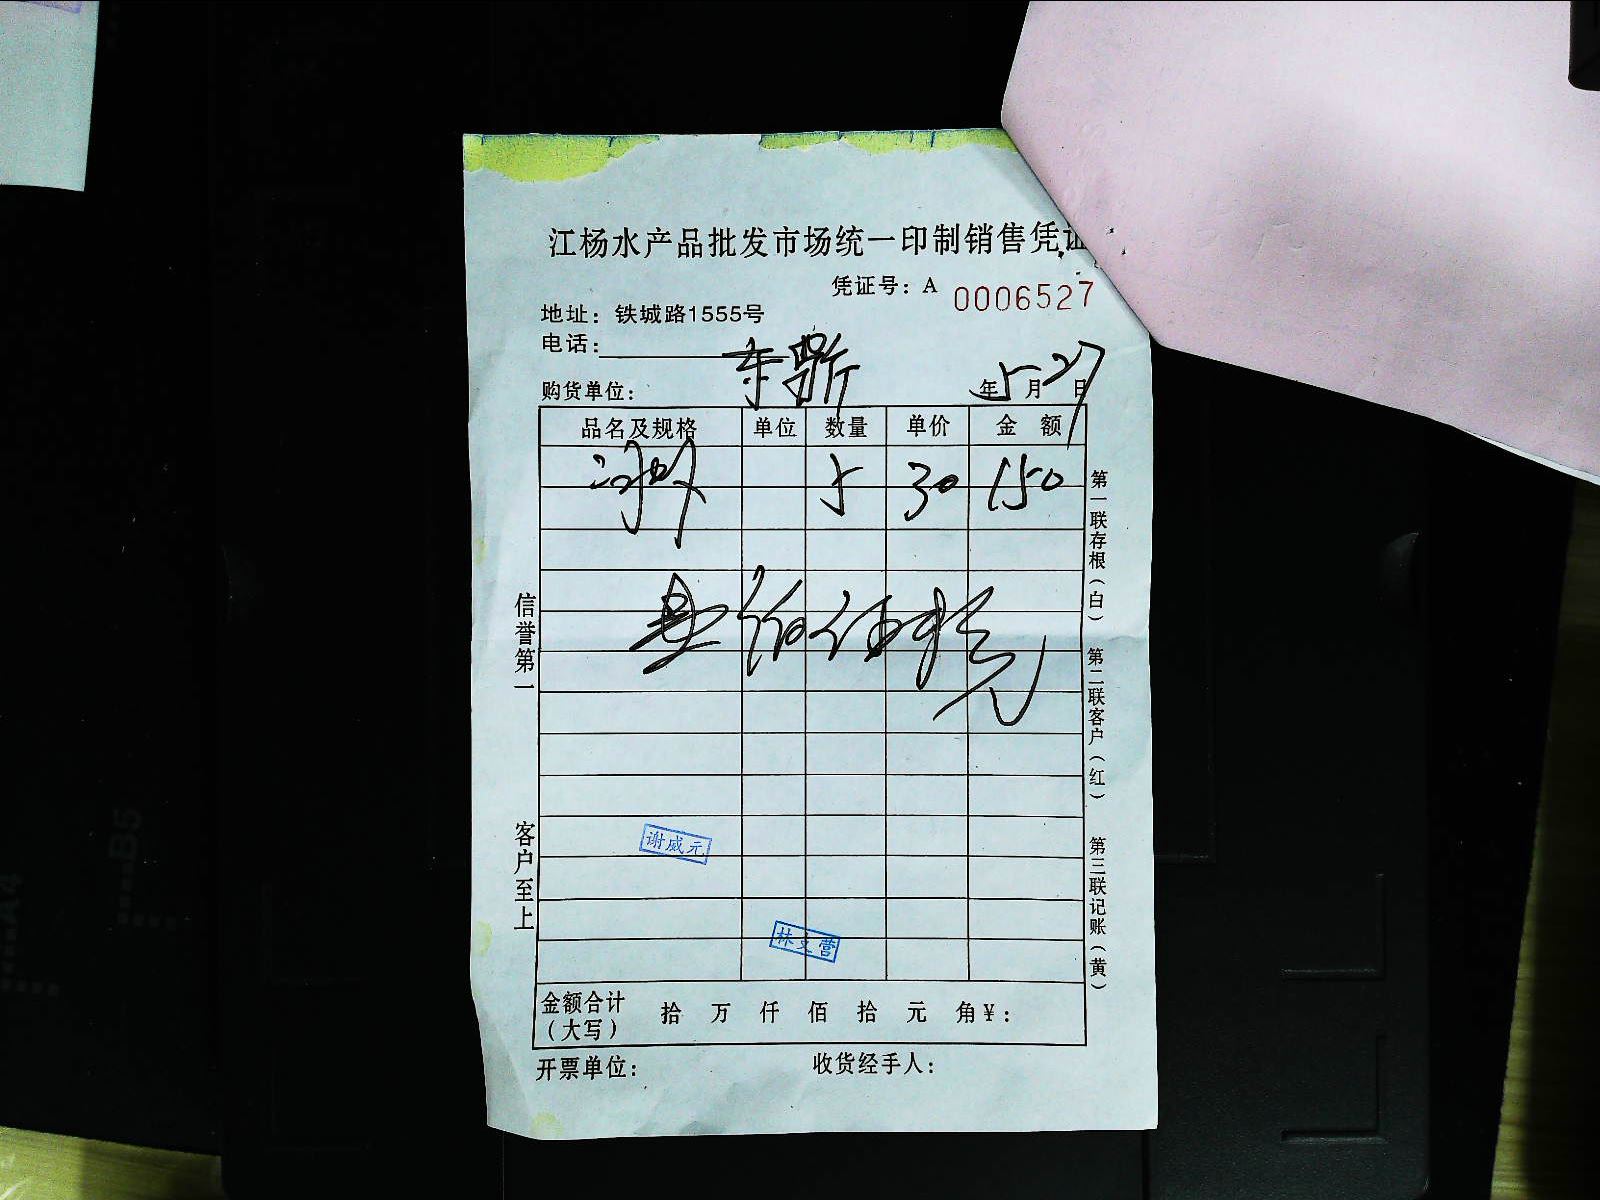 江杨水产品批发市场统一印制销售凭证
凭证号：A 0006527
地址：铁城路1555号
电话：
购货单位： 东鼎 年 5 月 27 日
品名及规格 单位 数量 单价 金 额
河虾 5 30 150
壹佰伍拾元
谢威元
金额合计（大写） 拾 万 仟 佰 拾 元 角 ¥：
开票单位： 收货经手人：
信誉第一
客户至上
第一联存根（白）
第二联客户（红）
第三联记账（黄）
B5
A4